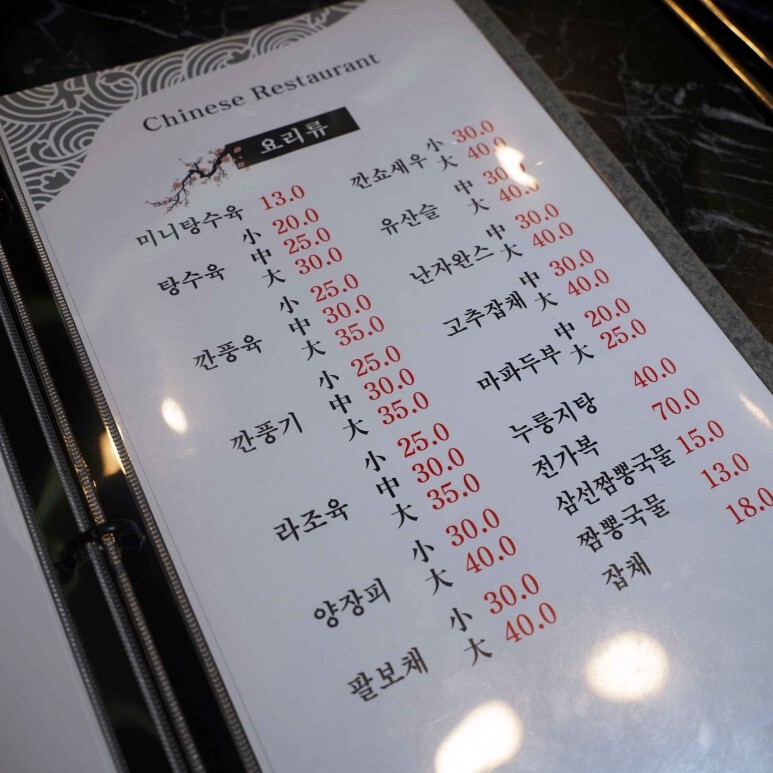 Chinese Restaurant
요리류
미니탕수육 13.0
탕수육
小 20.0
中 25.0
大 30.0
깐풍육
小 25.0
中 30.0
大 35.0
깐풍기
小 25.0
中 30.0
大 35.0
라조육
小 25.0
中 30.0
大 35.0
양장피
小 30.0
大 40.0
팔보채
小 30.0
大 40.0
깐쇼새우
小 30.0
大 40.0
유산슬
中 30.0
大 40.0
난자완스
中 30.0
大 40.0
고추잡채
中 30.0
大 40.0
마파두부
中 20.0
大 25.0
누룽지탕 40.0
전가복 70.0
삼선짬뽕국물 15.0
짬뽕국물 13.0
잡채 18.0